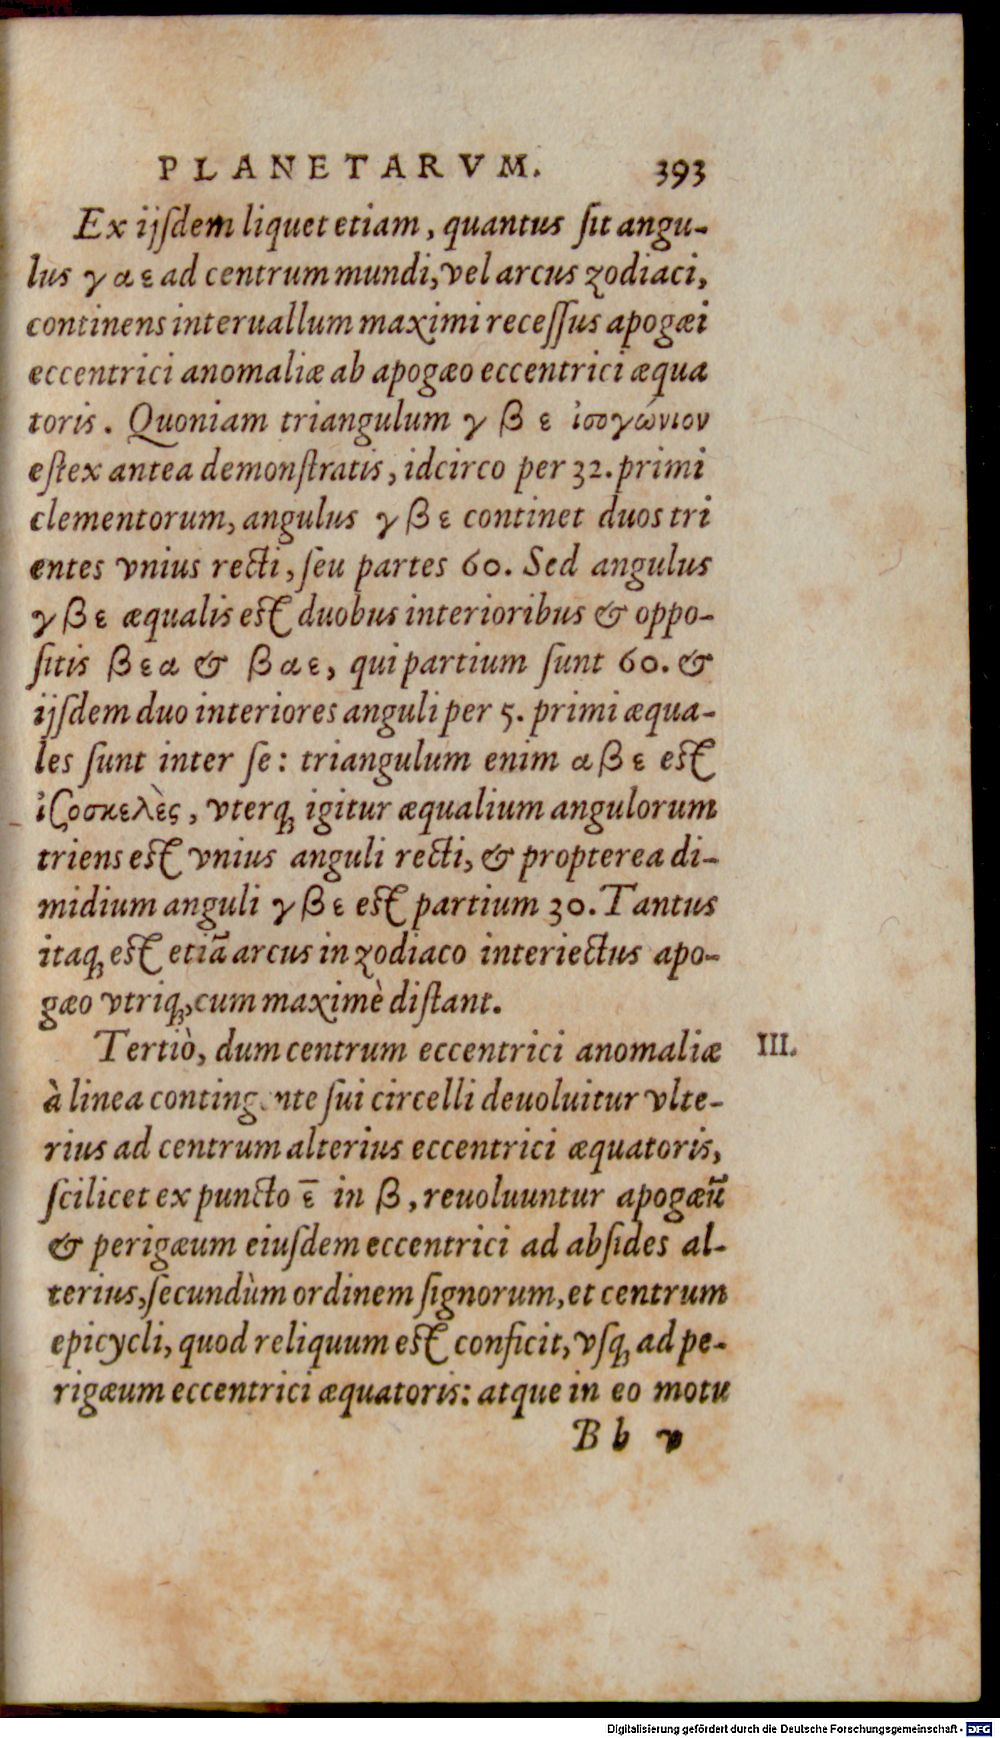 PLANETARVM. 393
Ex ijſdem liquet etiam, quantus ſit angu-
lus γ α ε ad centrum mundi, vel arcus zodiaci,
continens interuallum maximi receſſus apogæi
eccentrici anomaliæ ab apogæo eccentrici æqua
toris. Quoniam triangulum γ β ε ἰσογώνιον
eſt ex antea demonſtratis, idcirco per 32. primi
clementorum, angulus γ β ε continet duos tri
entes vnius recti, ſeu partes 60. Sed angulus
γ β ε æqualis eſt duobus interioribus & oppo-
ſitis β ε α & β α ε, qui partium ſunt 60. &
ijſdem duo interiores anguli per 5. primi æqua-
les ſunt inter ſe: triangulum enim α β ε eſt
ἰσοσκελὲς, vterq; igitur æqualium angulorum
triens eſt vnius anguli recti, & propterea di-
midium anguli γ β ε eſt partium 30. Tantus
itaq; eſt etiā arcus in zodiaco interiectus apo-
gæo vtriq;, cum maximè diſtant.
Tertiò, dum centrum eccentrici anomaliæ III.
à linea contingente ſui circelli deuoluitur vlte-
rius ad centrum alterius eccentrici æquatoris,
ſcilicet ex puncto ε̄ in β, reuoluuntur apogæū
& perigæum eiuſdem eccentrici ad abſides al-
terius, ſecundùm ordinem ſignorum, et centrum
epicycli, quod reliquum eſt conficit, vſq; ad pe-
rigæum eccentrici æquatoris: atque in eo motu
B b v
Digitalisierung gefördert durch die Deutsche Forschungsgemeinschaft - DFG